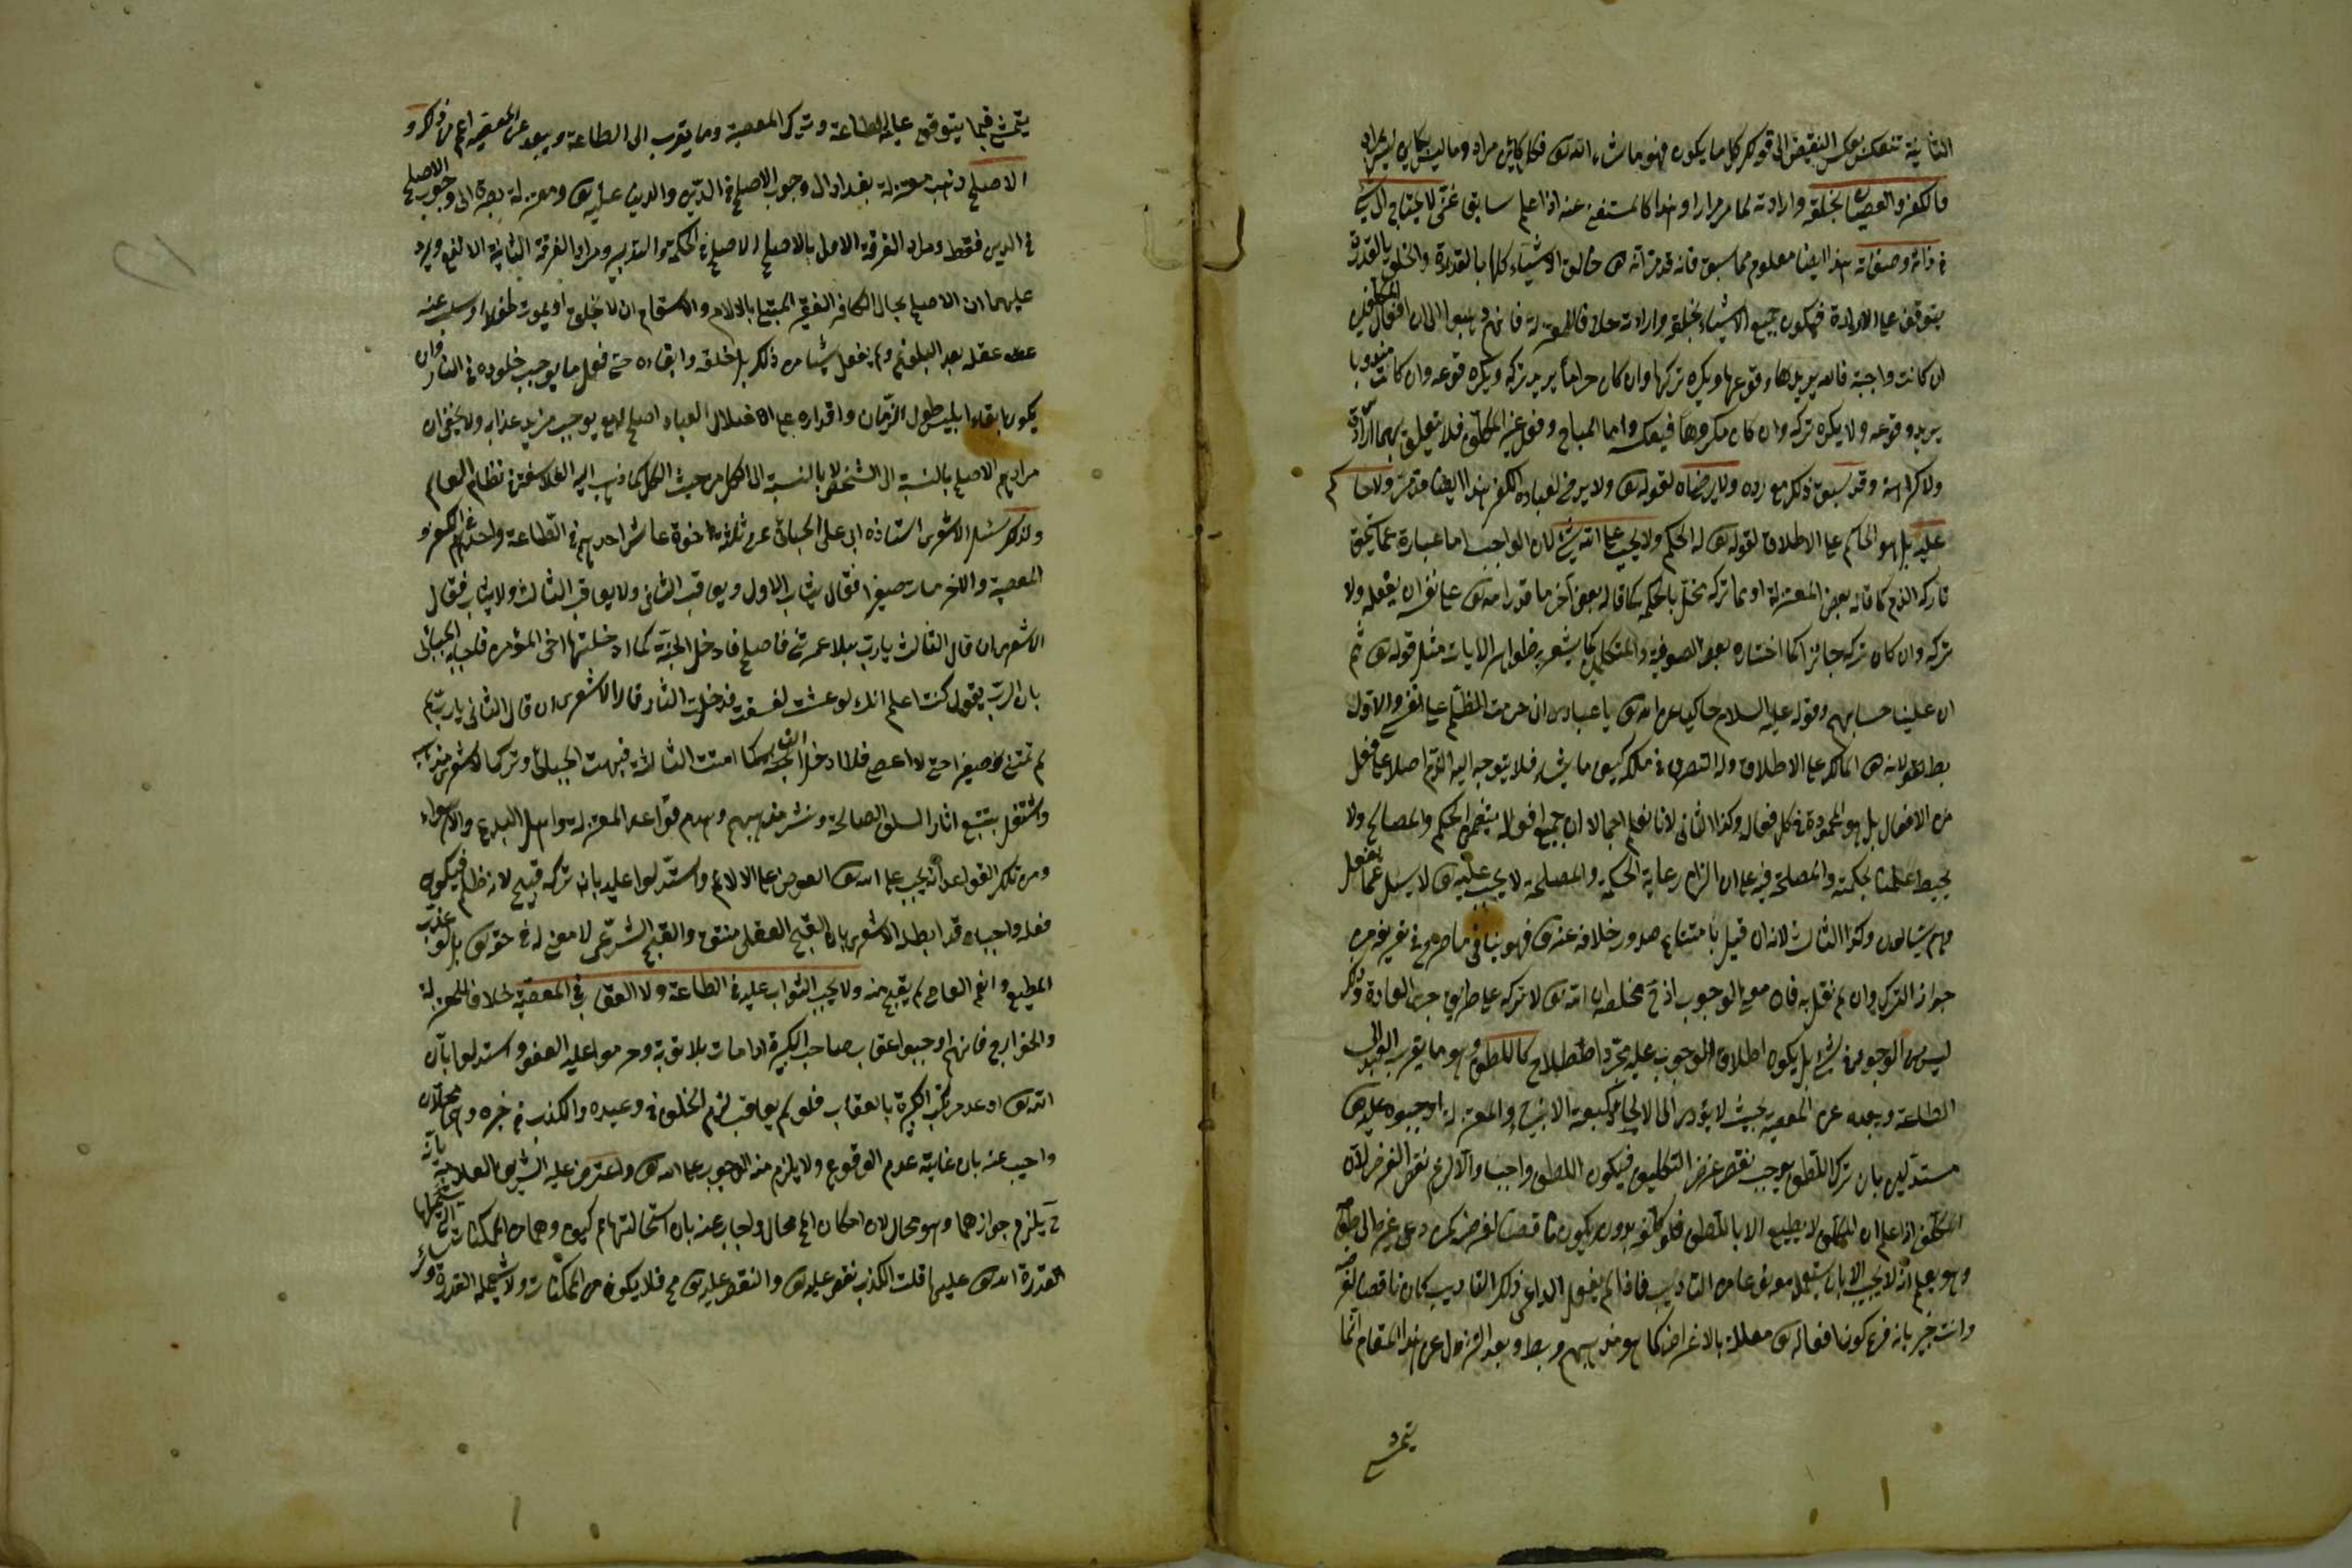 الثانية تنعكس بعكس النقيض الى قولكم كل ما يكون فهو ما شاء الله تع فكل كائن مراد وما ليس بكائن ليس بمراد
فالكفر والعصيان بخلقه وارادته لما مر مرارا وهذا كالمستغنى عنه اذا علم سابقا غنى لا يحتاج الى شئ
فى ذاته وصفاته هذا ايضا معلوم مما سبق فانه قد مر انه تع خالق الاشياء كلها بالقدرة والخلق بالقدرة
يتوقف على الارادة فيكون جميع الاشياء بخلقه وارادته خلافا للمعتزلة فانهم ذهبوا الى ان افعال المكلفين
ان كانت واجبة فالله يريد وقوعها ويكره تركها وان كان حراما يريد تركه ويكره وقوعه وان كانت مندوبا
يريد وقوعه ولا يكره تركه وان كان مكروها فبعكسه واما المباح وفعل غير المكلف فلا يتعلق بهما ارادة
ولا كراهة وقد سبق ذلك مع رده ولا يرضاه لقوله تع ولا يرضى لعباده الكفر هذا ايضا قد مر ولا حاكم
عليه بل هو الحاكم على الاطلاق لقوله تع له الحكم ولا يجب على الله شئ لان الواجب اما عبارة عما يستحق
تاركه الذم كما قاله بعض المعتزلة او عما تركه مخل بالحكمة كما قاله بعض آخر او ما قدر الله تع على نفسه ان يفعله ولا
تركه وان كان تركه جائزا كما اختاره بعض الصوفية والمتكلمين كما يشعر به ظواهر الايات مثل قوله تع ثم
ان علينا حسابهم وقوله عليه السلام حاكيا عن الله تع يا عبادى انى حرمت الظلم على نفسى والاول
بط لانه تع المالك على الاطلاق وله التصرف فى ملكه كيف ما يشاء فلا يتوجه اليه الذم اصلا على فعل
من الافعال بل هو المحمود فى كل فعاله وكذا الثانى لانا نعلم اجمالا ان جميع افعاله يتضمن الحكم والمصالح ولا
يحيط علمنا بحكمته والمصلحة فيه على ان التزام رعاية الحكمة والمصلحة لا يجب عليه تع لا يسئل عما يفعل
وهم يسألون وكذا الثالث لانه ان قيل بامتناع صدور خلافه عنه تع فهو ينافى ما صرح فى تعريفه من
جواز الترك وان لم نقل به فات معنى الوجوب اذ ح محصله ان الله تع لا تركه على طريق جرى العادة وذلك
ليس من الوجوب فى شئ بل يكون اطلاق الوجوب عليه مجرد اصطلاح كاللطف وهو ما يقرب العبد الى
الطاعة ويبعده عن المعصية بحيث لا يؤدى الى الالجاء كبعثة الانبياء والمعتزلة اوجبوه عليه تع
مستدلين بان ترك اللطف يوجب نقض غرض التكليف فيكون اللطف واجبا والا لزم نقض الغرض لان
المكلف اذا علم ان المكلف لا يطيع الا باللطف فلو كلفه بدونه يكون ناقضا لغرضه كمن دعى غيره الى طعام
وهو يعلم انه لا يجيب الا بان يستعمل معه نوعا من التأديب فاذا لم يفعل الداعى ذلك التأديب كان ناقضا لغرضه
وانت خبير بانه فرع كون افعاله تع معللة بالاغراض كما هو مذهبهم وبط وبعد التنزل عن هذا المقام انما
يتمشى
يتمشى فيما يتوقف عليه الطاعة وترك المعصية وما يقرب الى الطاعة ويبعد عن المعصية اعم من ذلك و
الاصلح ذهب معتزلة بغداد الى وجوب الاصلح فى الدين والدنيا عليه تع ومعتزلة بصرة الى وجوب الاصلح
فى الدين فقط ومراد الفرقة الاولى بالاصلح الاصلح فى الحكمة والتدبير ومراد الفرقة الثانية الانفع ويرد
عليهما ان الاصلح بحال الكافر الفقير المبتلى بالالام والاسقام ان لا يخلق او يموت طفلا او يسلب عنه
عقله بعد البلوغ ولم يفعل شيئا من ذلك بل خلقه وابقاه حتى فعل ما يوجب خلوده فى النار وان
يكون ابقاء ابليس طول الزمان واقداره على اضلال العباد اصلح له مع يوجب مزيد عذابه ولا يخفى ان
مرادهم الاصلح بالنسبة الى الشخص لا بالنسبة الى الكل من حيث الكل كما ذهب اليه الفلاسفة فى نظام العالم
ولذلك سئل الاشعرى استاذه ابى على الجبائى عن ثلثة اخوة عاش احدهم فى الطاعة واحدهم فى الكفر و
المعصية والاخر مات صغيرا فقال يثاب الاول ويعاقب الثانى ولا يعاقب الثالث ولا يثاب فقال
الاشعرى ان قال الثالث يا رب هلا عمرتنى فاصلح فادخل الجنة كما دخلتها اخى المؤمن فاجابه الجبائى
بان الرب يقول كنت اعلم انك لو عشت لفسقت فدخلت النار قال الاشعرى ان قال الثانى يا رب لم
لم تمتنى صغيرا حتى لا اعصى فلا ادخل النار كما امت الثالث فبهت الجبائى وترك الاشعرى مذهبه
واشتغل بتتبع اثار السلف الصالح ونشر مذهبهم وهدم قواعد المعتزلة واهل البدع والاهواء
ومن تلك القواعد انه يجب على الله تع العوض على الالام واستدلوا عليه بان تركه قبيح لانه ظلم فيكون
فعله واجبا وقد ابطله الاشعرى بان القبح العقلى منتف والقبح الشرعى لا معنى له فى حقه تع بل لو عذب
المطيع وانعم العاصى لم يقبح منه ولا يجب الثواب عليه فى الطاعة ولا العقاب فى المعصية خلافا للمعتزلة
والخوارج فانهم اوجبوا عقاب صاحب الكبيرة اذا مات بلا توبة وحرموا عليه العفو واستدلوا بان
الله تع اوعد مرتكب الكبيرة بالعقاب فلو لم يعاقب لزم الخلف فى وعيده والكذب فى خبره وهما محالان
واجيب عنه بان غايته عدم الوقوع ولا يلزم منه الوجوب على الله تع واعترض عليه الشريف العلامة بانه
ح يلزم جوازهما وهو محال لان امكان المحال محال واجاب عنه بان استحالتهما ممم كيف وهما من الممكنات التى يشملها
قدرة الله تع عليها قلت الكذب نقص عليه تع والنقص عليه تع مح فلا يكون من الممكنات ولا يشمله القدرة